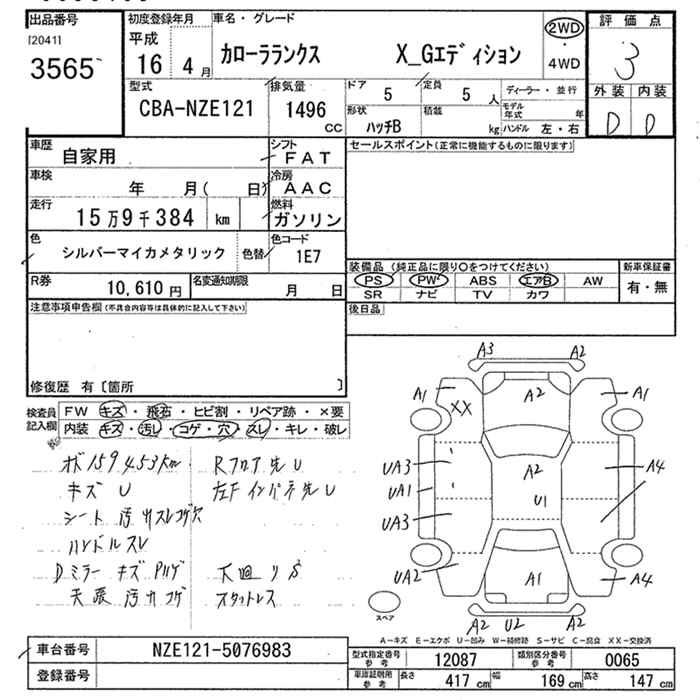 出品番号 初度登録年月 車名・グレード 評価点
[2041] 平成 カローラランクス X_Gエディション 2WD 3
3565 16 年 4 月 ・ 4WD 外装 内装
型式 排気量 ドア 定員 ディーラー・並行 D D
CBA-NZE121 1496 CC 5 5 人 モデル年式 年
形状 ハッチB 積載 kg ハンドル 左・右
車歴 自家用 シフト FAT セールスポイント(正常に機能するものに限ります)
車検 年 月( 日) 冷房 AAC
走行 15万9千384 km 燃料 ガソリン
色 シルバーマイカメタリック 色替 色コード 1E7
装備品 (純正品に限り○をつけてください) 新車保証書
R券 10,610 円 名変通知期限 月 日 PS PW ABS エアB AW 有・無
SR ナビ TV カワ
注意事項申告欄(不具合内容等は具体的に記入して下さい) 後日品
修復歴 有〔箇所 〕
検査員記入欄 FW キズ・飛石・ヒビ割・リペア跡・×要
内装 キズ・汚レ・コゲ・穴・スレ・キレ・破レ
A3 A2
A1 A2 A1
XX
UA3 A2 A4
UA1 U1
UA3
UA2 A1 A4
A2 U2 A2
スペア
メ159453km Rフロア先U
キズ U 左Fインパネ先U
シート 汚レスレコゲ穴
ハンドルスレ
Dミラー キズ Pハゲ 下廻りS
天張 汚レコゲ スタットレス
A-キズ E-エクボ U-凹み W-補修跡 S-サビ C-腐食 XX-交換済
車台番号 NZE121-5076983 型式指定番号 参考 12087 類別区分番号 参考 0065
登録番号 車庫証明用 参考 長さ 417 cm 幅 169 cm 高さ 147 cm